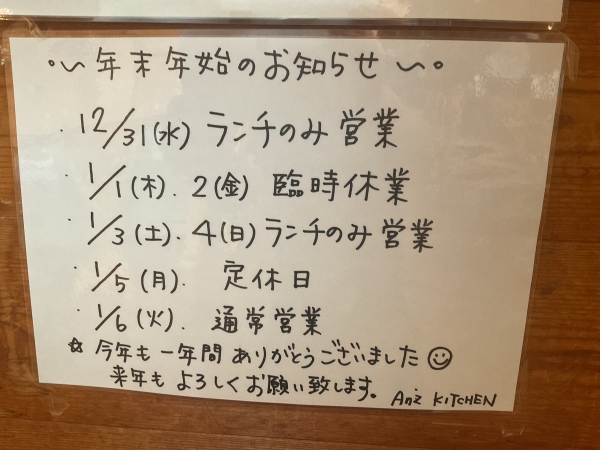 年末年始のお知らせ
・12/31(水) ランチのみ営業
・1/1(木). 2(金) 臨時休業
・1/3(土). 4(日) ランチのみ営業
・1/5(月). 定休日
・1/6(火). 通常営業
☆ 今年も一年間ありがとうございました☺
来年もよろしくお願い致します。 An'z KITCHEN